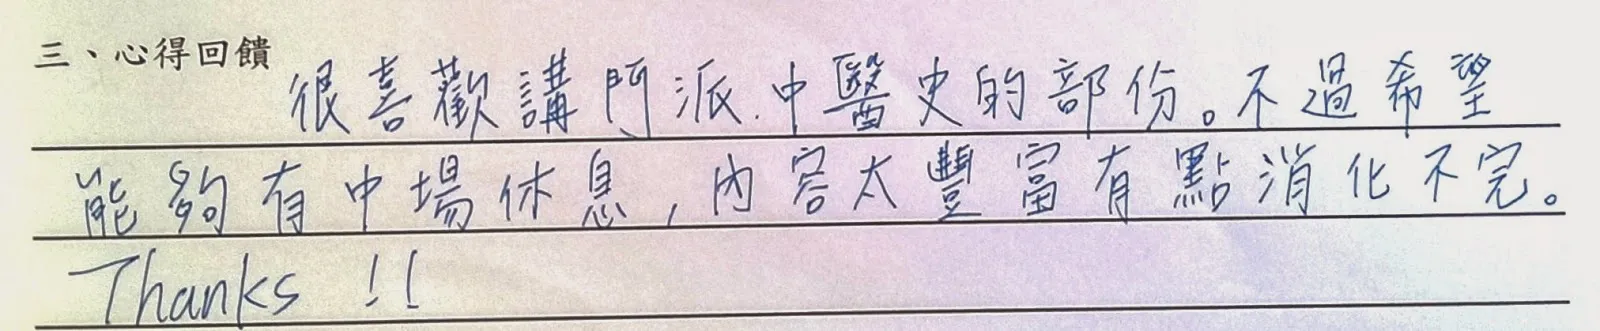 三、心得回饋
很喜歡講門派.中醫史的部份。不過希望
能夠有中場休息,內容太豐富有點消化不完。
Thanks !!